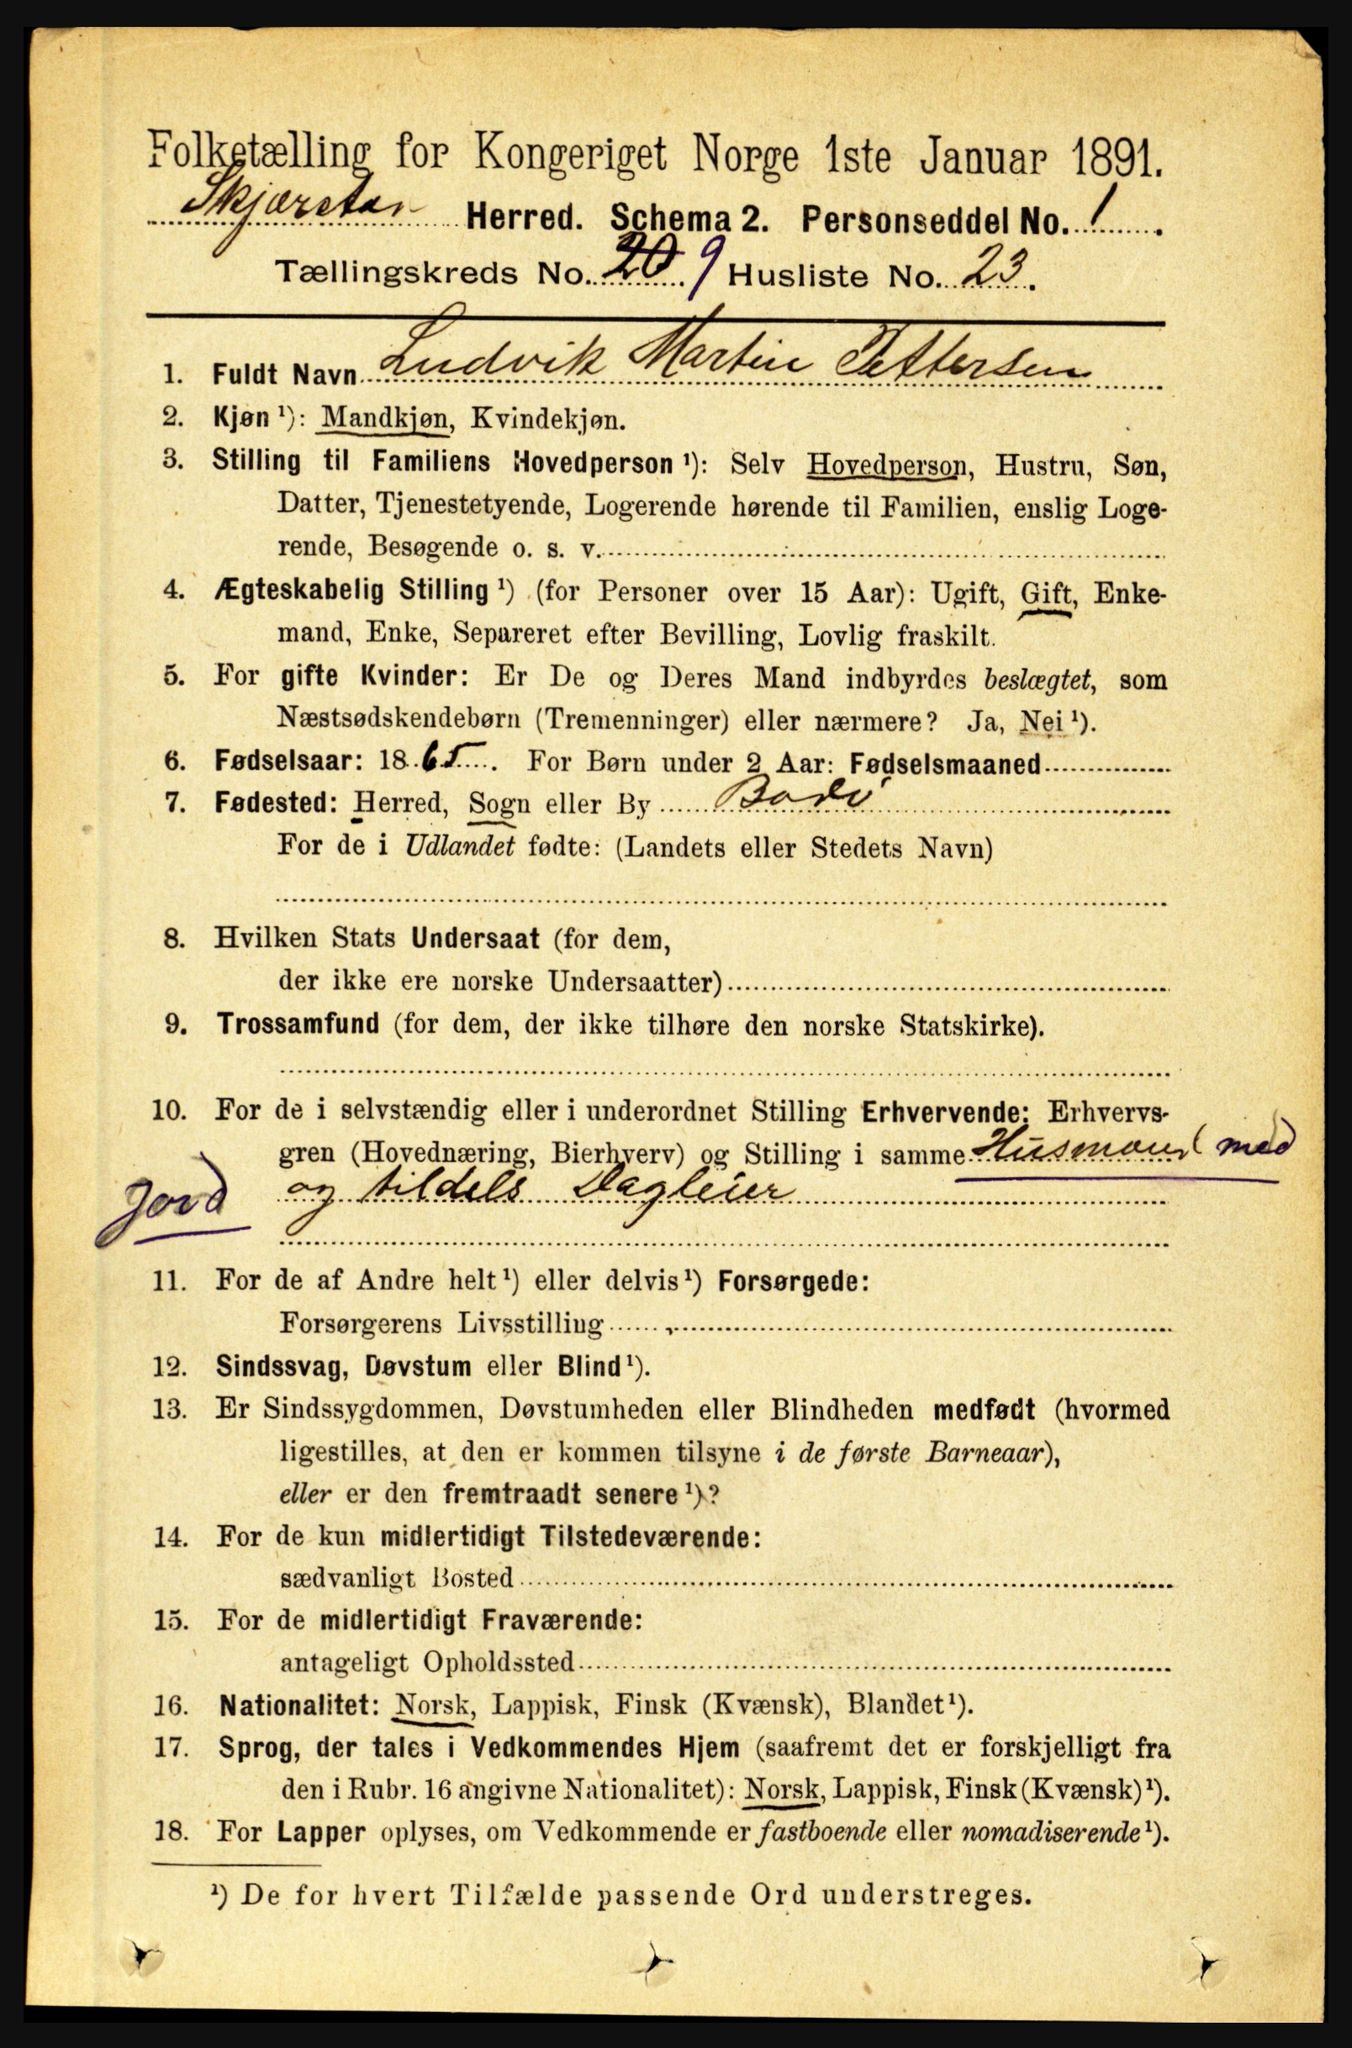 Folketælling for Kongeriget Norge 1ste Januar 1891.
Skjærstad Herred. Schema 2. Personseddel No. 1.
Tællingskreds No. 20 9 Husliste No. 23.
1. Fuldt Navn Ludvik Martin Pettersen
2. Kjøn ¹): Mandkjøn, Kvindekjøn.
3. Stilling til Familiens Hovedperson ¹): Selv Hovedperson, Hustru, Søn,
Datter, Tjenestetyende, Logerende hørende til Familien, enslig Loge-
rende, Besøgende o. s. v.
4. Ægteskabelig Stilling ¹) (for Personer over 15 Aar): Ugift, Gift, Enke-
mand, Enke, Separeret efter Bevilling, Lovlig fraskilt.
5. For gifte Kvinder: Er De og Deres Mand indbyrdes beslægtet, som
Næstsødskendebørn (Tremenninger) eller nærmere? Ja, Nei ¹).
6. Fødselsaar: 1865. For Børn under 2 Aar: Fødselsmaaned
7. Fødested: Herred, Sogn eller By Bodø
For de i Udlandet fødte: (Landets eller Stedets Navn)
8. Hvilken Stats Undersaat (for dem,
der ikke ere norske Undersaatter)
9. Trossamfund (for dem, der ikke tilhøre den norske Statskirke).
10. For de i selvstændig eller i underordnet Stilling Erhvervende: Erhvervs-
gren (Hovednæring, Bierhverv) og Stilling i samme Husmand med
Jord og tildels Dagleier
11. For de af Andre helt ¹) eller delvis ¹) Forsørgede:
Forsørgerens Livsstilling
12. Sindssvag, Døvstum eller Blind ¹).
13. Er Sindssygdommen, Døvstumheden eller Blindheden medfødt (hvormed
ligestilles, at den er kommen tilsyne i de første Barneaar),
eller er den fremtraadt senere ¹)?
14. For de kun midlertidigt Tilstedeværende:
sædvanligt Bosted
15. For de midlertidigt Fraværende:
antageligt Opholdssted
16. Nationalitet: Norsk, Lappisk, Finsk (Kvænsk), Blandet ¹).
17. Sprog, der tales i Vedkommendes Hjem (saafremt det er forskjelligt fra
den i Rubr. 16 angivne Nationalitet): Norsk, Lappisk, Finsk (Kvænsk) ¹).
18. For Lapper oplyses, om Vedkommende er fastboende eller nomadiserende ¹).
¹) De for hvert Tilfælde passende Ord understreges.